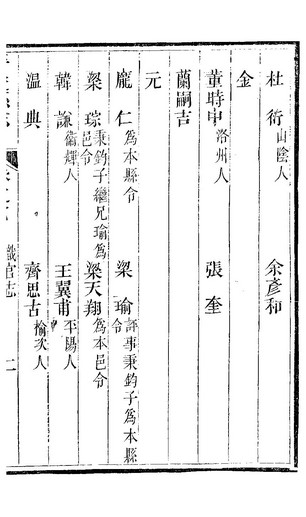 杜衍山陰人　余彥和
金
董時中洛州人　張奎
蘭嗣吉
元
龐仁爲本縣令　梁瑜評事秉鈞子爲本縣令
梁琮秉鈞子繼兄瑜爲邑令　梁天翔爲本邑令
韓謙衞輝人　王翼甫平陽人
温典　齊思古榆次人
職官志　二